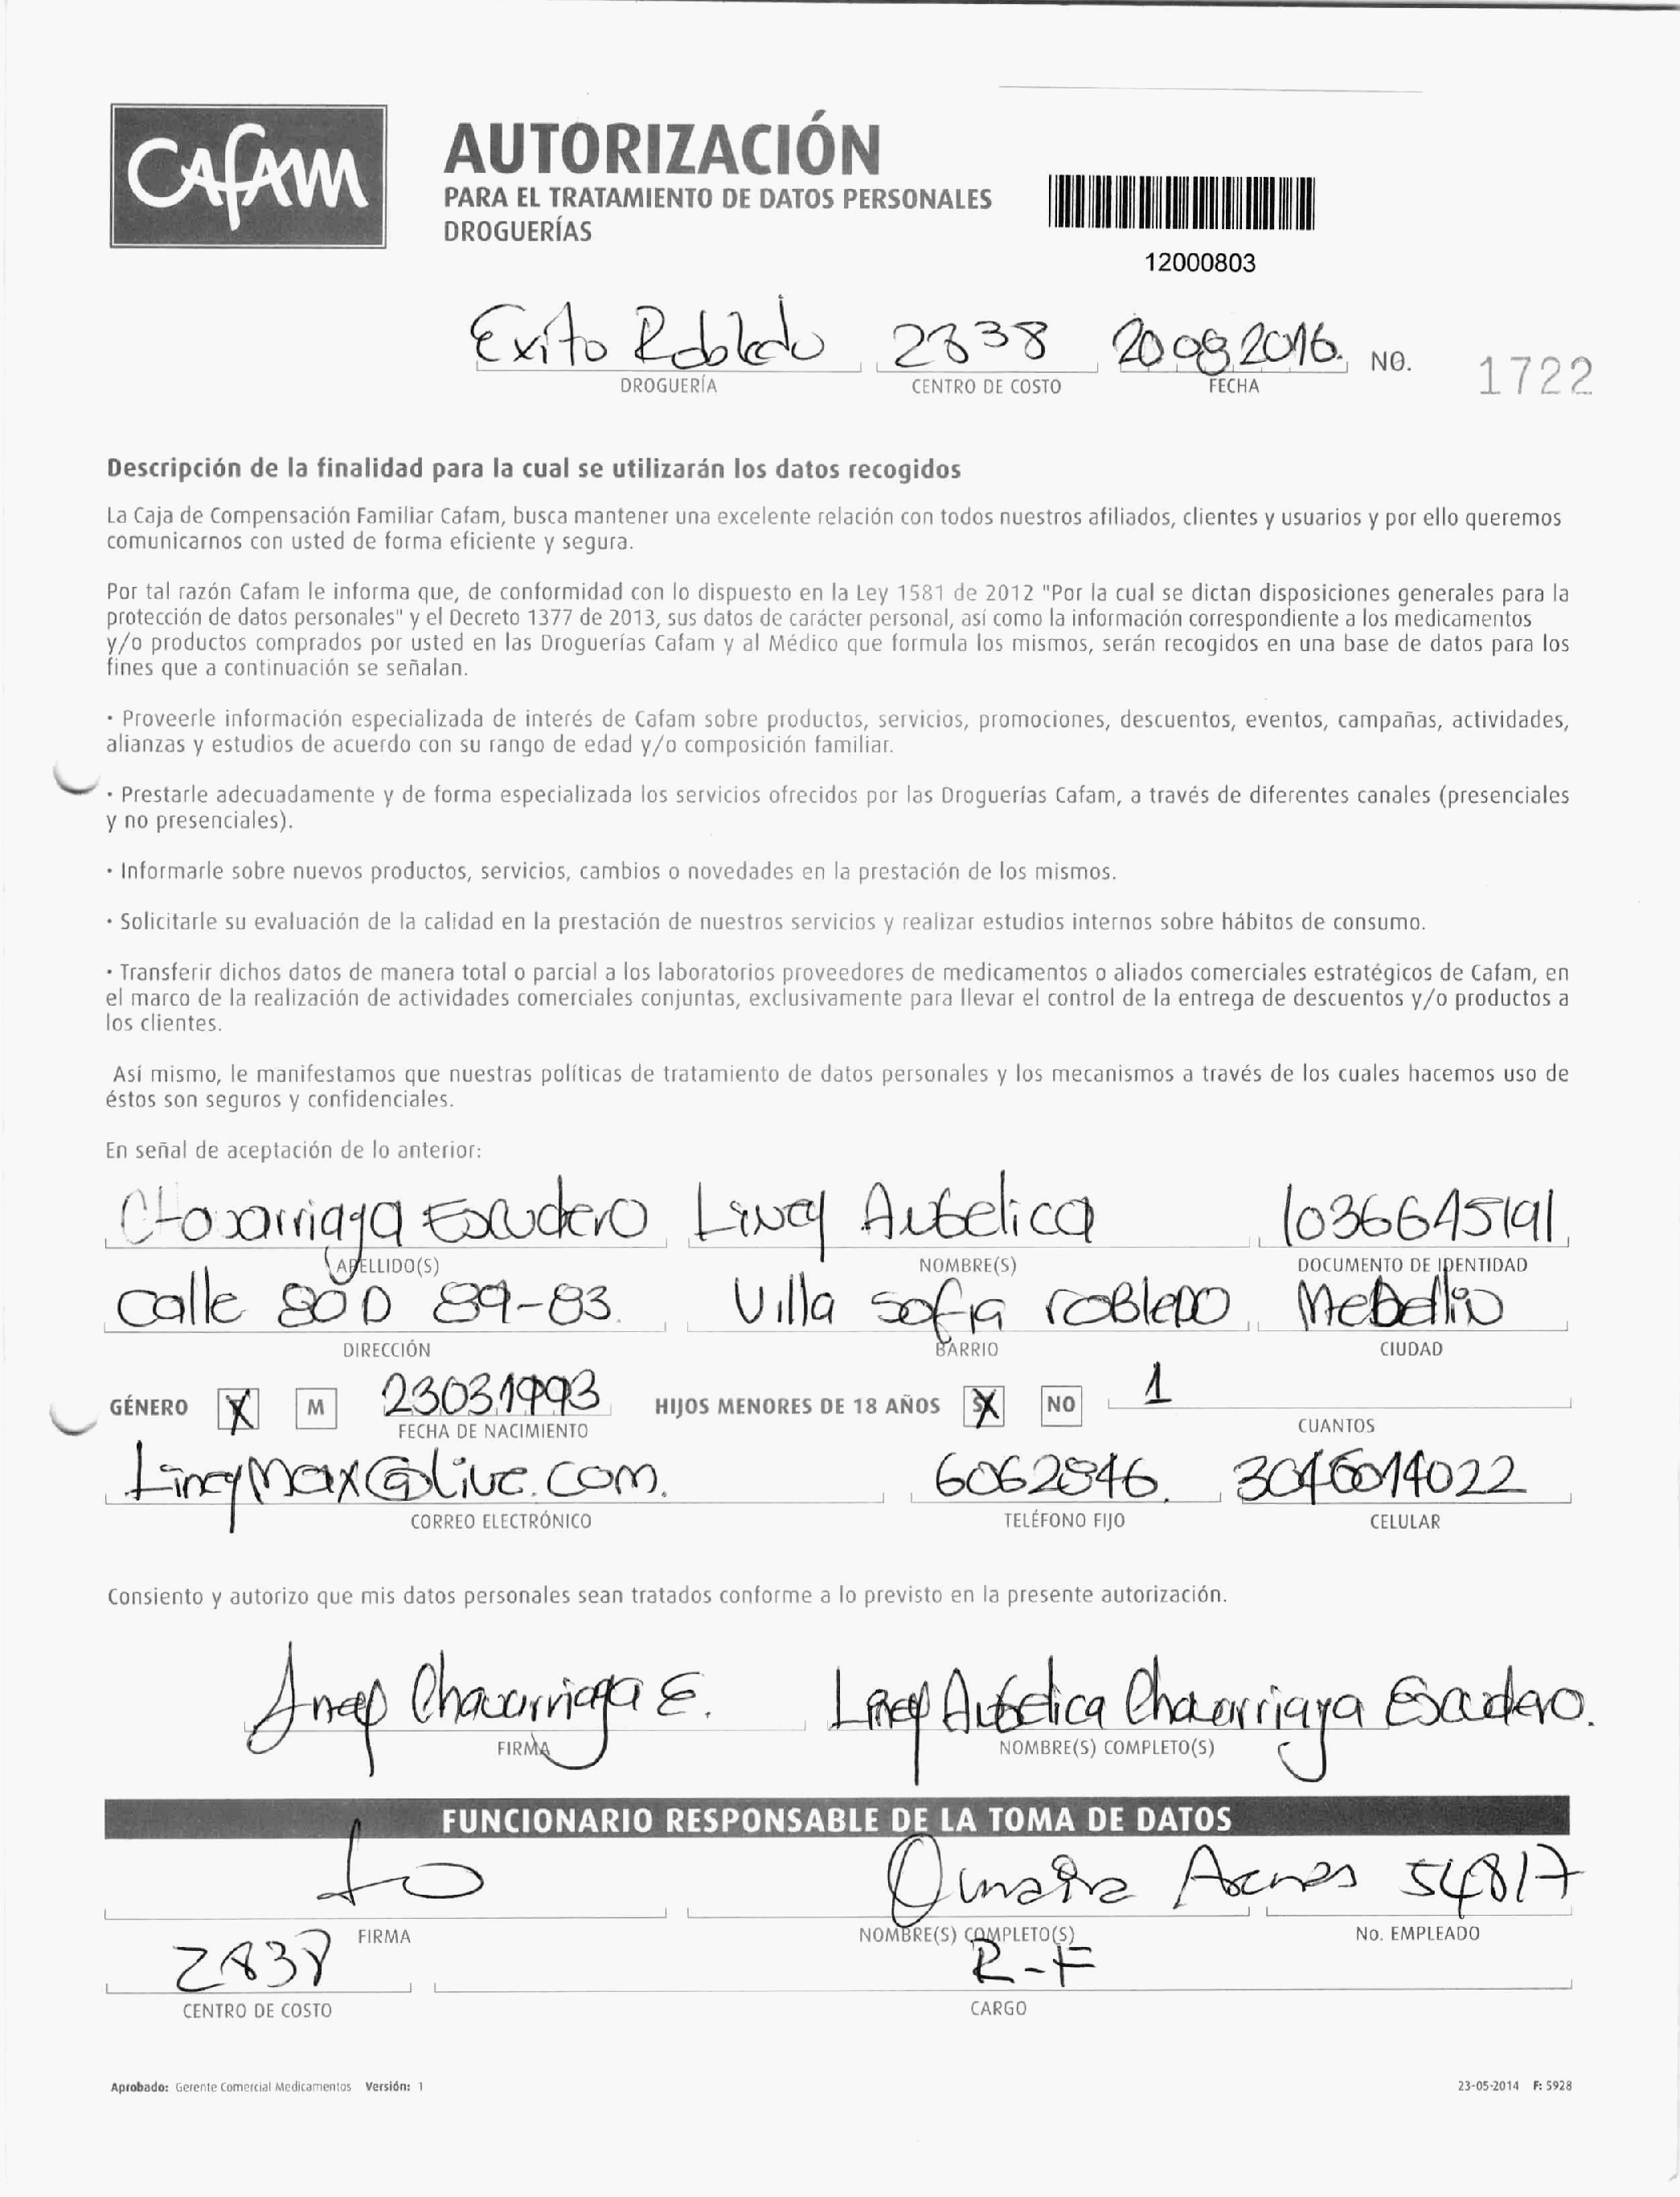 CAfAM
AUTORIZACIÓN
PARA EL TRATAMIENTO DE DATOS PERSONALES
DROGUERÍAS
12000803
Exito Robledo 2838 20 09 2016. NO. 1722
DROGUERÍA CENTRO DE COSTO FECHA
Descripción de la finalidad para la cual se utilizarán los datos recogidos
La Caja de Compensación Familiar Cafam, busca mantener una excelente relación con todos nuestros afiliados, clientes y usuarios y por ello queremos
comunicarnos con usted de forma eficiente y segura.
Por tal razón Cafam le informa que, de conformidad con lo dispuesto en la Ley 1581 de 2012 "Por la cual se dictan disposiciones generales para la
protección de datos personales" y el Decreto 1377 de 2013, sus datos de carácter personal, así como la información correspondiente a los medicamentos
y/o productos comprados por usted en las Droguerías Cafam y al Médico que formula los mismos, serán recogidos en una base de datos para los
fines que a continuación se señalan.
· Proveerle información especializada de interés de Cafam sobre productos, servicios, promociones, descuentos, eventos, campañas, actividades,
alianzas y estudios de acuerdo con su rango de edad y/o composición familiar.
· Prestarle adecuadamente y de forma especializada los servicios ofrecidos por las Droguerías Cafam, a través de diferentes canales (presenciales
y no presenciales).
· Informarle sobre nuevos productos, servicios, cambios o novedades en la prestación de los mismos.
· Solicitarle su evaluación de la calidad en la prestación de nuestros servicios y realizar estudios internos sobre hábitos de consumo.
· Transferir dichos datos de manera total o parcial a los laboratorios proveedores de medicamentos o aliados comerciales estratégicos de Cafam, en
el marco de la realización de actividades comerciales conjuntas, exclusivamente para llevar el control de la entrega de descuentos y/o productos a
los clientes.
Así mismo, le manifestamos que nuestras políticas de tratamiento de datos personales y los mecanismos a través de los cuales hacemos uso de
éstos son seguros y confidenciales.
En señal de aceptación de lo anterior:
Escudero 1036645191
APELLIDO(S) NOMBRE(S) DOCUMENTO DE IDENTIDAD
calle 80D 89-83. Villa sofia roBleDO
DIRECCIÓN BARRIO CIUDAD
GÉNERO X M 23031993 HIJOS MENORES DE 18 AÑOS X NO 1
FECHA DE NACIMIENTO CUANTOS
6062846.
CORREO ELECTRÓNICO TELÉFONO FIJO CELULAR
Consiento y autorizo que mis datos personales sean tratados conforme a lo previsto en la presente autorización.
Chavarriaga E. Chavarriaga Escudero.
FIRMA NOMBRE(S) COMPLETO(S)
FUNCIONARIO RESPONSABLE DE LA TOMA DE DATOS
54817
FIRMA NOMBRE(S) COMPLETO(S) No. EMPLEADO
2838 R-F
CENTRO DE COSTO CARGO
Aprobado: Gerente Comercial Medicamentos Versión: 1 23-05-2014 F: 5928